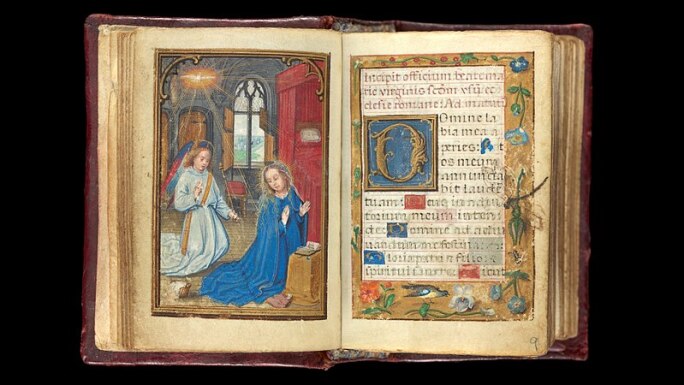 Incipit officium beate ma
rie virginis scdm usum ec
clesie romane: Ad matuti
Domine la
bia mea a
peries: Et
os meum
annuncia
bit laudem
tuam: Deus in adiu
torium meum inten
de: Domine ad adiu
vandum me festina
Gloria patri et filio et
spiritui sancto: Sicut
9